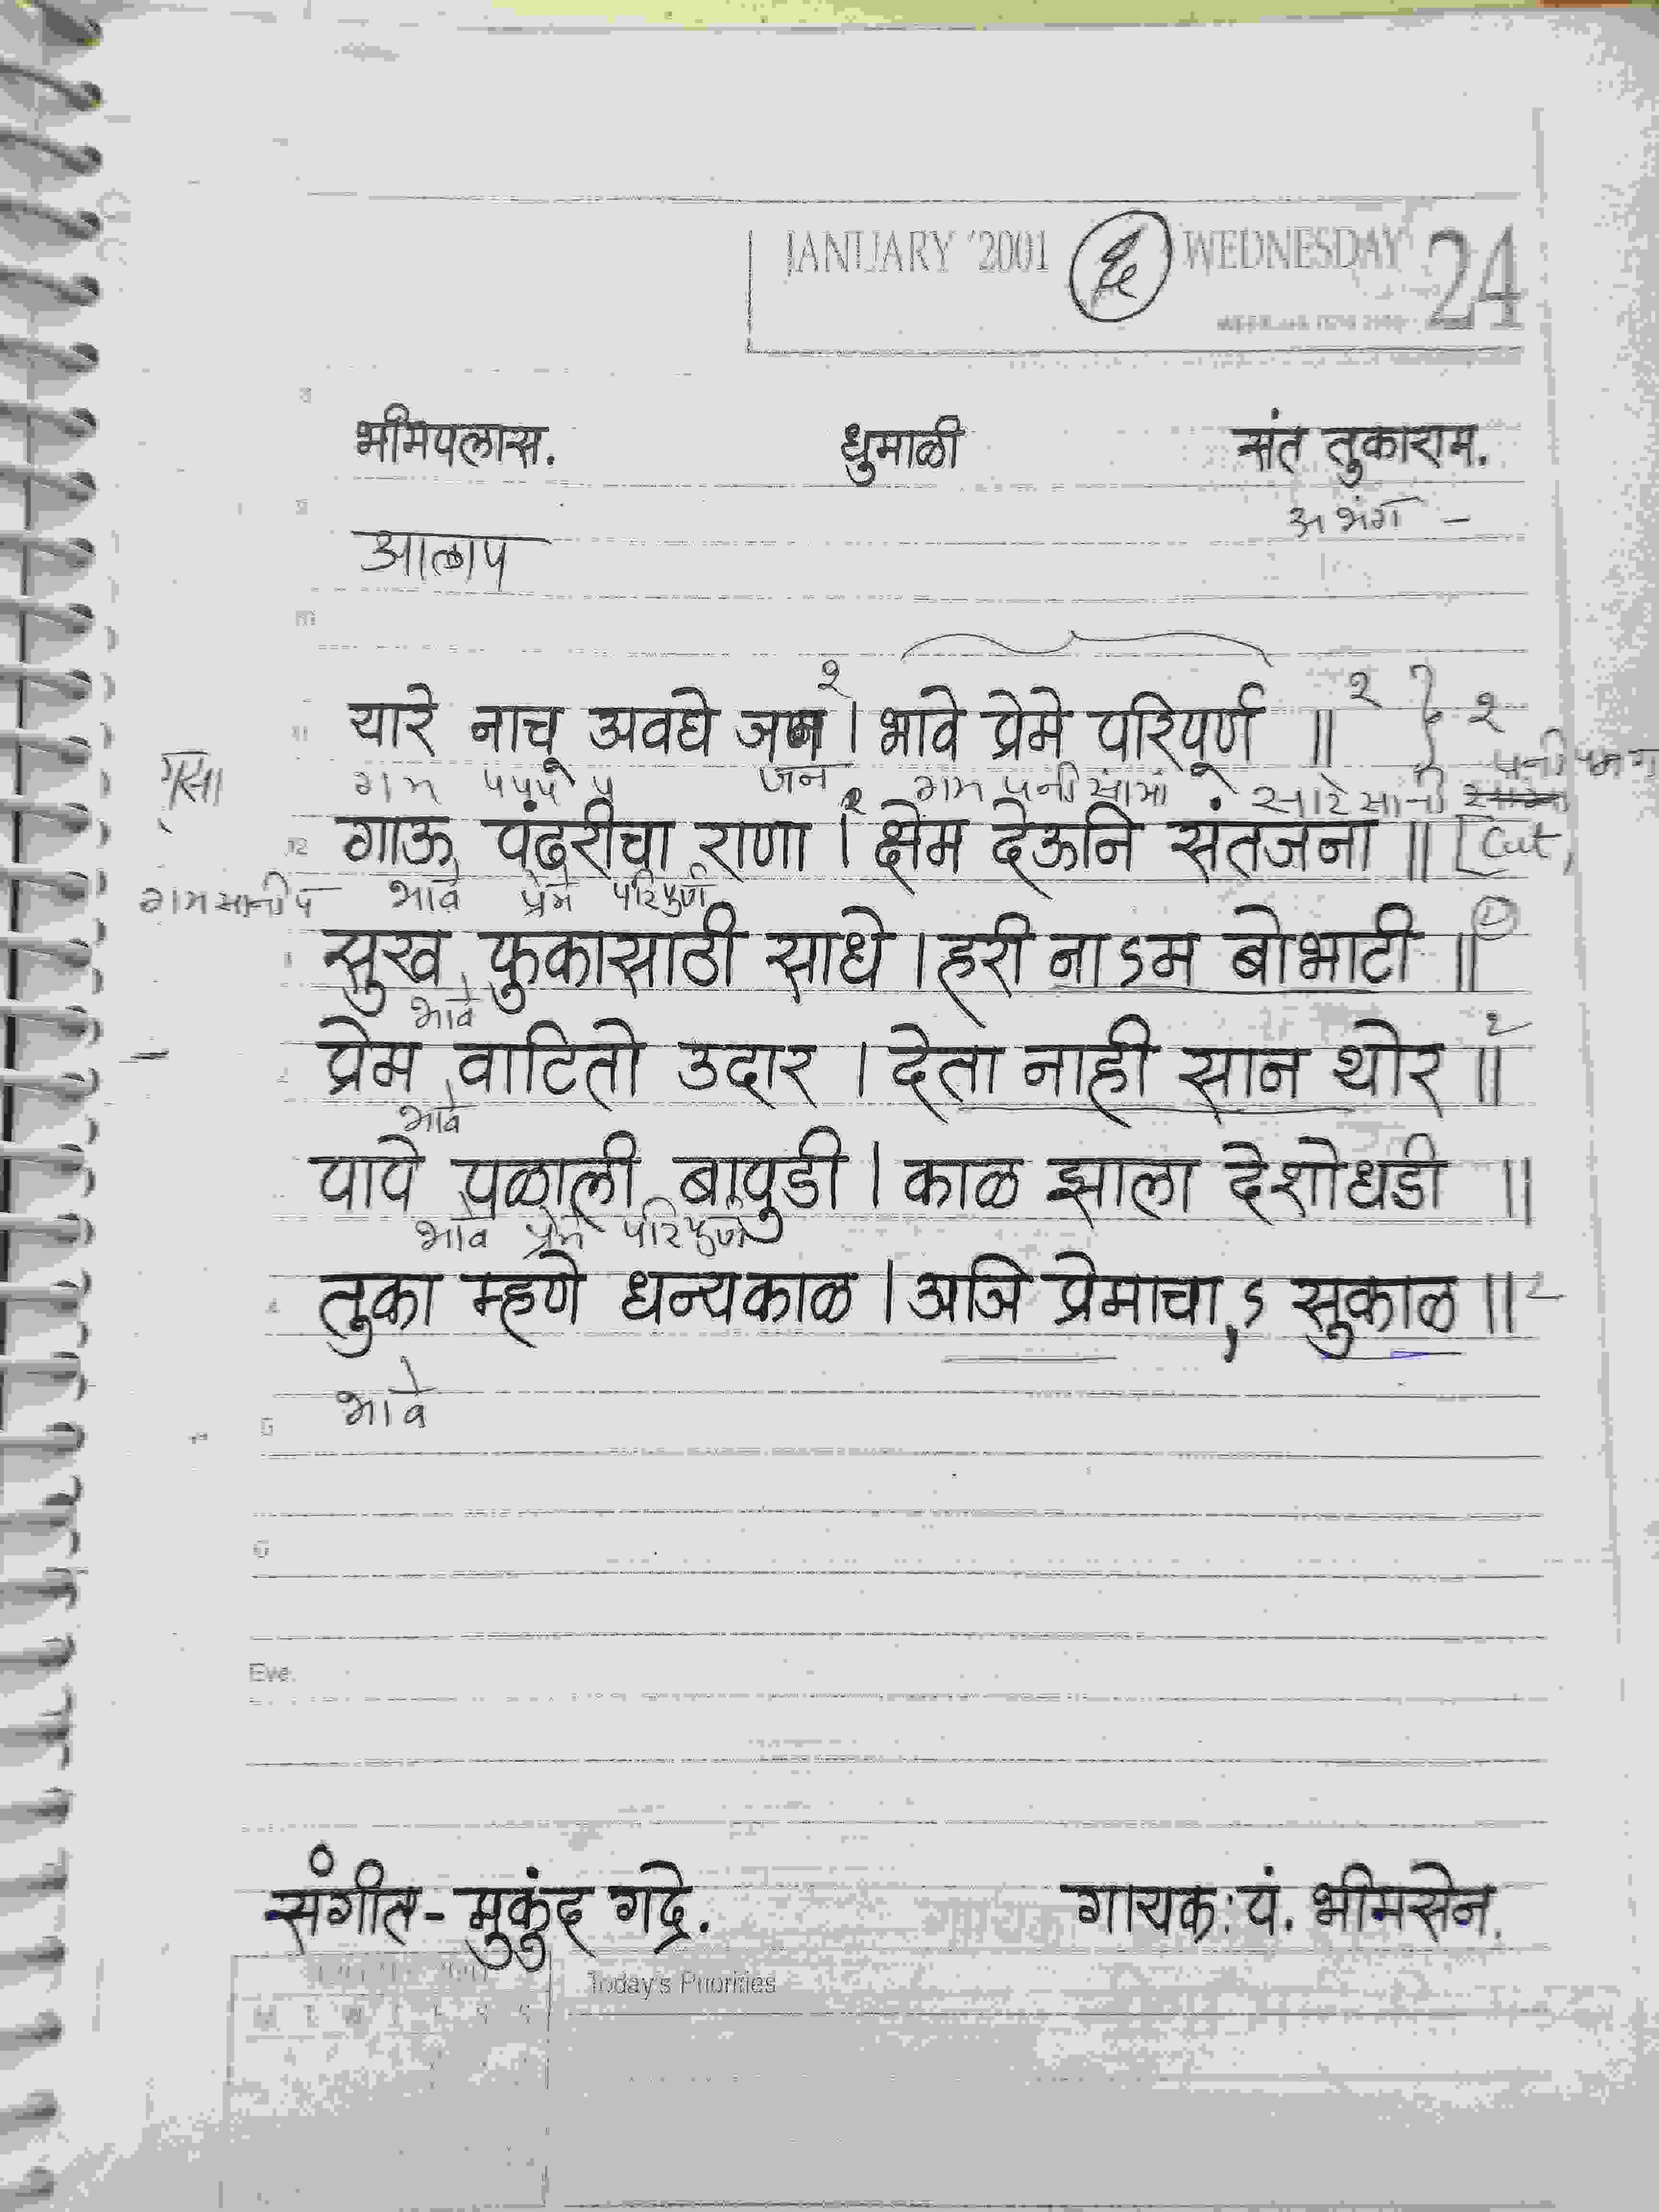 JANUARY '2001 WEDNESDAY 24
भीमपलास. धुमाळी संत तुकाराम.
अभंग -
आलाप
यारे नाचू अवघे जन । भावे प्रेमे परिपूर्ण ॥ २ } २
गम पपप प जन गम पनी सांमां सारे सानी पनी पम ग
गाऊ पंढरीचा राणा । क्षेम देऊनि संतजना ॥ [Cut,
गम सानी प भावे प्रेमे परिपुर्ण
सुख फुकासाठी साधे । हरी नाऽम बोभाटी ॥
भावे
प्रेम वाटितो उदार । देता नाही सान थोर ॥ २
भावे
पापे पळाली बापुडी । काळ झाला देशोधडी ॥
भावे प्रेमे परिपुर्ण
तुका म्हणे धन्यकाळ । अजि प्रेमाचा,ऽ सुकाळ ॥ २
भावे
Eve.
संगीत - मुकुंद गद्रे. गायक: पं. भीमसेन.
Today's Priorities